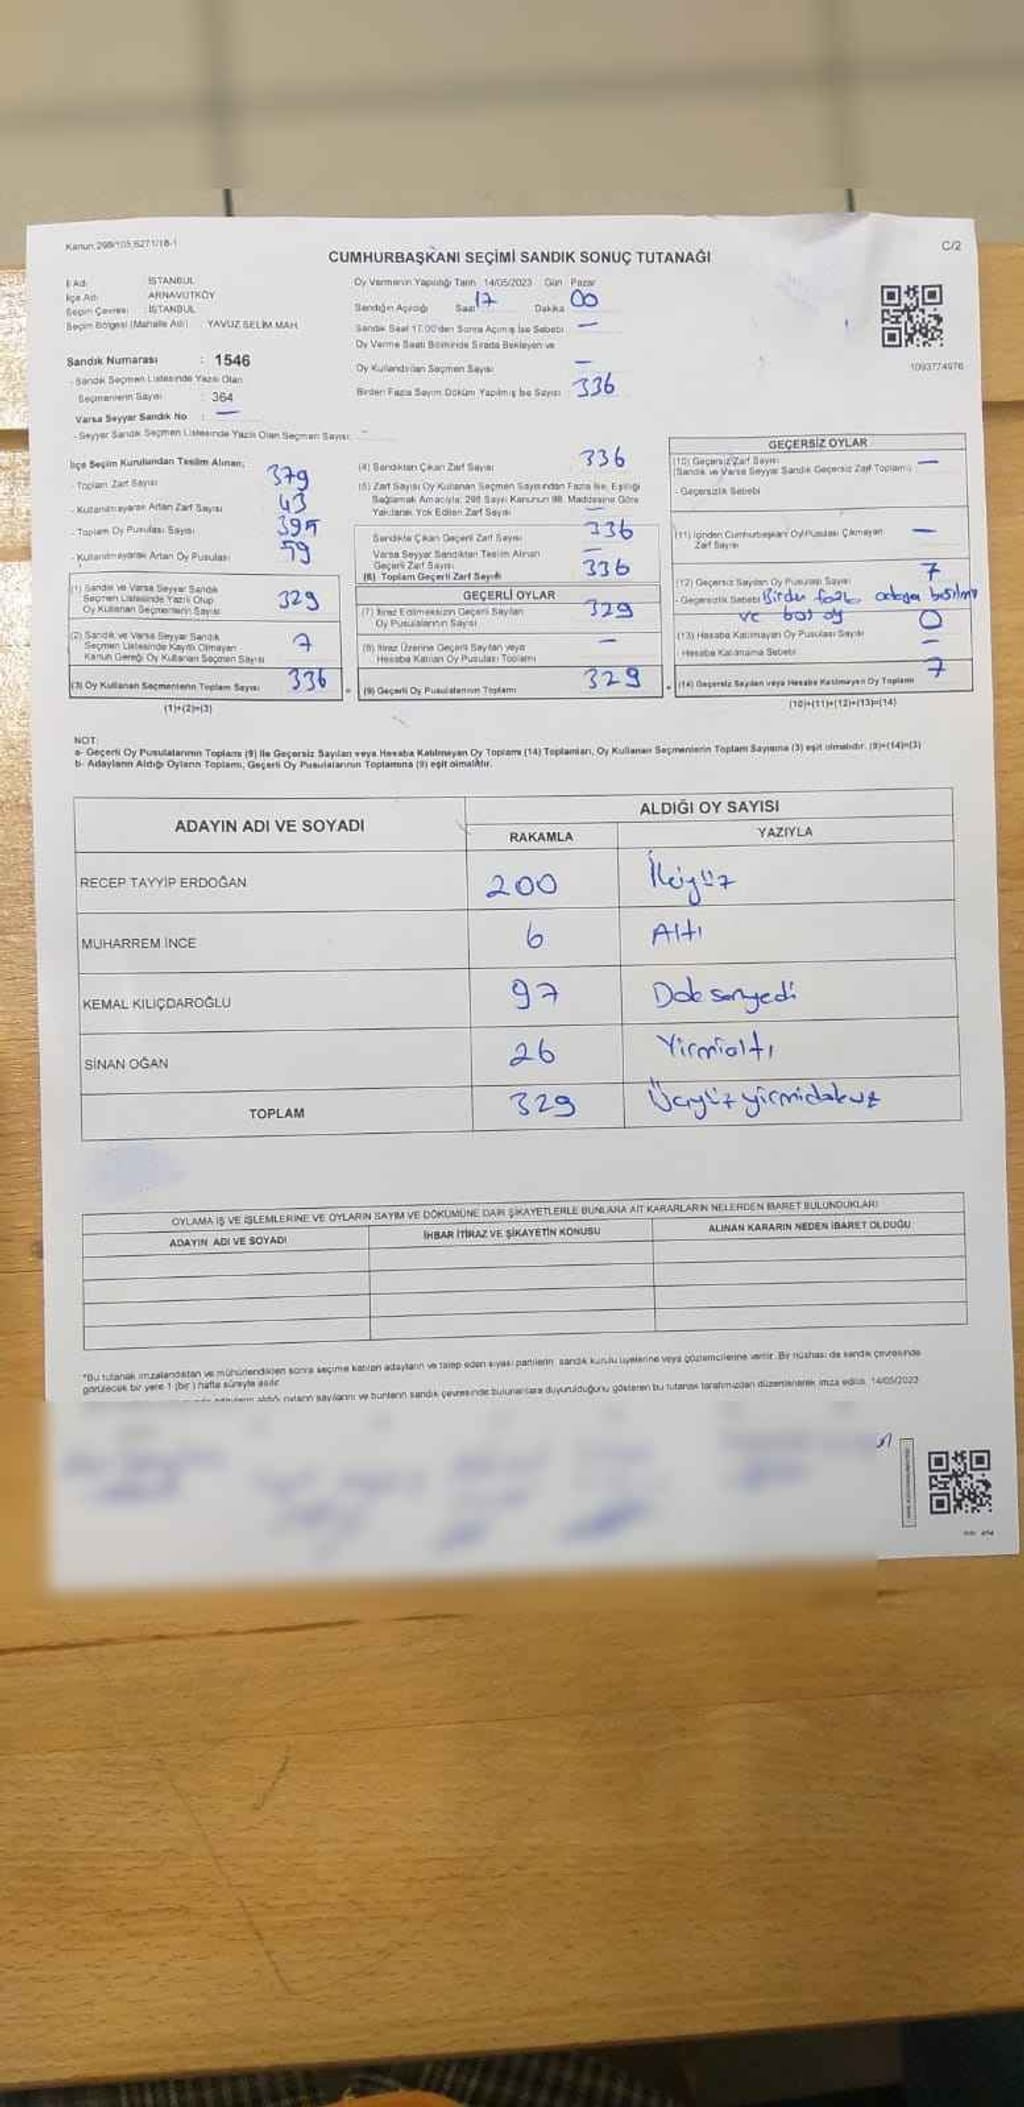 Kanun: 298/105,6271/18-1
C/2
CUMHURBAŞKANI SEÇİMİ SANDIK SONUÇ TUTANAĞI
İl Adı: İSTANBUL
İlçe Adı: ARNAVUTKÖY
Seçim Çevresi: İSTANBUL
Seçim Bölgesi (Mahalle Adı) YAVUZ SELİM MAH.
Sandık Numarası : 1546
- Sandık Seçmen Listesinde Yazılı Olan
Seçmenlerin Sayısı : 364
Varsa Seyyar Sandık No : —
- Seyyar Sandık Seçmen Listesinde Yazılı Olan Seçmen Sayısı: -
Oy Vermenin Yapıldığı Tarih 14/05/2023 Gün Pazar
Sandığın Açıldığı Saat 17 Dakika 00
Sandık Saat 17.00'den Sonra Açılmış İse Sebebi —
Oy Verme Saati Bitiminde Sırada Bekleyen ve
Oy Kullandırılan Seçmen Sayısı —
Birden Fazla Sayım Döküm Yapılmış İse Sayısı 336
1093774976
İlçe Seçim Kurulundan Teslim Alınan;
- Toplam Zarf Sayısı 379
- Kullanılmayarak Artan Zarf Sayısı 43
- Toplam Oy Pusulası Sayısı 395
- Kullanılmayarak Artan Oy Pusulası 59
(1) Sandık ve Varsa Seyyar Sandık
Seçmen Listesinde Yazılı Olup
Oy Kullanan Seçmenlerin Sayısı 329
(2) Sandık ve Varsa Seyyar Sandık
Seçmen Listesinde Kayıtlı Olmayan
Kanun Gereği Oy Kullanan Seçmen Sayısı 7
(3) Oy Kullanan Seçmenlerin Toplam Sayısı 336
(1)+(2)=(3)
(4) Sandıktan Çıkan Zarf Sayısı 336
(5) Zarf Sayısı Oy Kullanan Seçmen Sayısından Fazla İse, Eşitliği
Sağlamak Amacıyla; 298 Sayılı Kanunun 98. Maddesine Göre
Yakılarak Yok Edilen Zarf Sayısı —
Sandıkta Çıkan Geçerli Zarf Sayısı 336
Varsa Seyyar Sandıktan Teslim Alınan
Geçerli Zarf Sayısı —
(6) Toplam Geçerli Zarf Sayısı 336
GEÇERLİ OYLAR
(7) İtiraz Edilmeksizin Geçerli Sayılan
Oy Pusulalarının Sayısı 329
(8) İtiraz Üzerine Geçerli Sayılan veya
Hesaba Katılan Oy Pusulası Toplamı —
(9) Geçerli Oy Pusulalarının Toplamı 329
GEÇERSİZ OYLAR
(10) Geçersiz Zarf Sayısı
(Sandık ve Varsa Seyyar Sandık Geçersiz Zarf Toplamı) —
- Geçersizlik Sebebi
(11) İçinden Cumhurbaşkanı Oy Pusulası Çıkmayan
Zarf Sayısı —
(12) Geçersiz Sayılan Oy Pusulası Sayısı 7
- Geçersizlik Sebebi Birden fazla adaya basılmış
ve boş oy
(13) Hesaba Katılmayan Oy Pusulası Sayısı 0
Hesaba Katılmama Sebebi —
(14) Geçersiz Sayılan veya Hesaba Katılmayan Oy Toplamı 7
(10)+(11)+(12)+(13)=(14)
NOT:
a- Geçerli Oy Pusulalarının Toplamı (9) ile Geçersiz Sayılan veya Hesaba Katılmayan Oy Toplamı (14) Toplamları, Oy Kullanan Seçmenlerin Toplam Sayısına (3) eşit olmalıdır. (9)+(14)=(3)
b- Adayların Aldığı Oyların Toplamı, Geçerli Oy Pusulalarının Toplamına (9) eşit olmalıdır.
ADAYIN ADI VE SOYADI
ALDIĞI OY SAYISI
RAKAMLA YAZIYLA
RECEP TAYYİP ERDOĞAN 200 İkiyüz
MUHARREM İNCE 6 Altı
KEMAL KILIÇDAROĞLU 97 Doksanyedi
SİNAN OĞAN 26 Yirmialtı
TOPLAM 329 Üçyüzyirmidokuz
OYLAMA İŞ VE İŞLEMLERİNE VE OYLARIN SAYIM VE DÖKÜMÜNE DAİR ŞİKAYETLERLE BUNLARA AİT KARARLARIN NELERDEN İBARET BULUNDUKLARI
ADAYIN ADI VE SOYADI İHBAR İTİRAZ VE ŞİKAYETİN KONUSU ALINAN KARARIN NEDEN İBARET OLDUĞU
*Bu tutanak imzalandıktan ve mühürlendikten sonra seçime katılan adayların ve talep eden siyasi partilerin sandık kurulu üyelerine veya gözlemcilerine verilir. Bir nüshası da sandık çevresinde
görülecek bir yere 1 (bir) hafta süreyle asılır.
aldığı oyların sayılarını ve bunların sandık çevresinde bulunanlara duyurulduğunu gösteren bu tutanak tarafımızdan düzenlenerek imza edildi. 14/05/2023